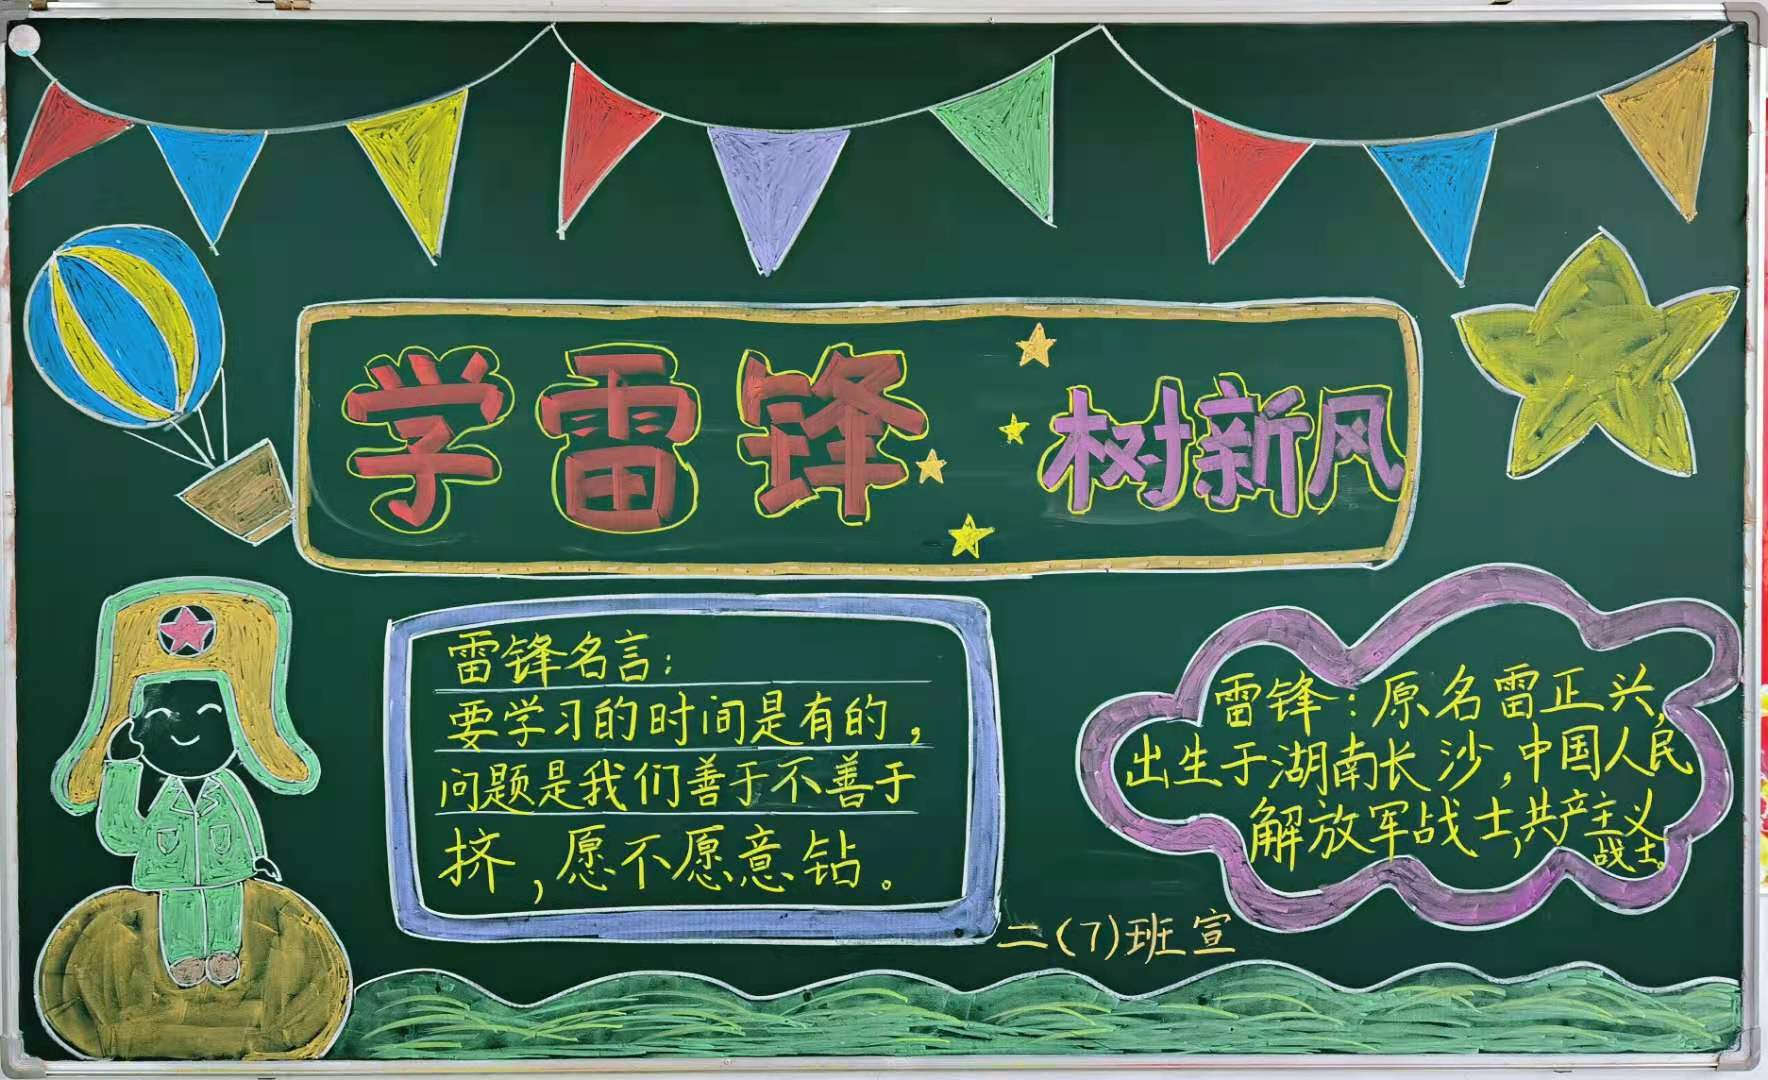 学雷锋 树新风
雷锋名言：
要学习的时间是有的，
问题是我们善于不善于
挤，愿不愿意钻。
雷锋：原名雷正兴，
出生于湖南长沙，中国人民
解放军战士，共产主义
战士。
二（7）班宣